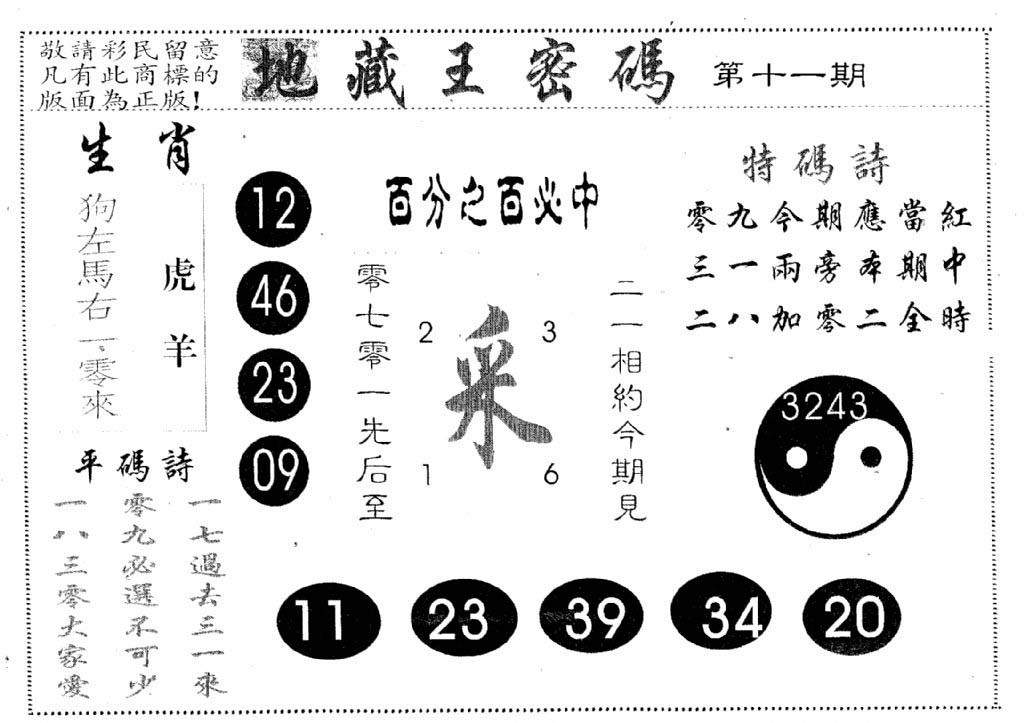 敬請彩民留意
凡有此商標的
版面為正版!
地藏王密碼
第十一期
生肖
狗左馬右一零來
虎羊
12
46
23
09
百分之百必中
零七零一先后至
2
3
采
1
6
二一相約今期見
特碼詩
零九今期應當紅
三一兩旁本期中
二八加零二全時
3243
平碼詩
一七過去三一來
零九必選不可少
一八三零大家愛
11
23
39
34
20